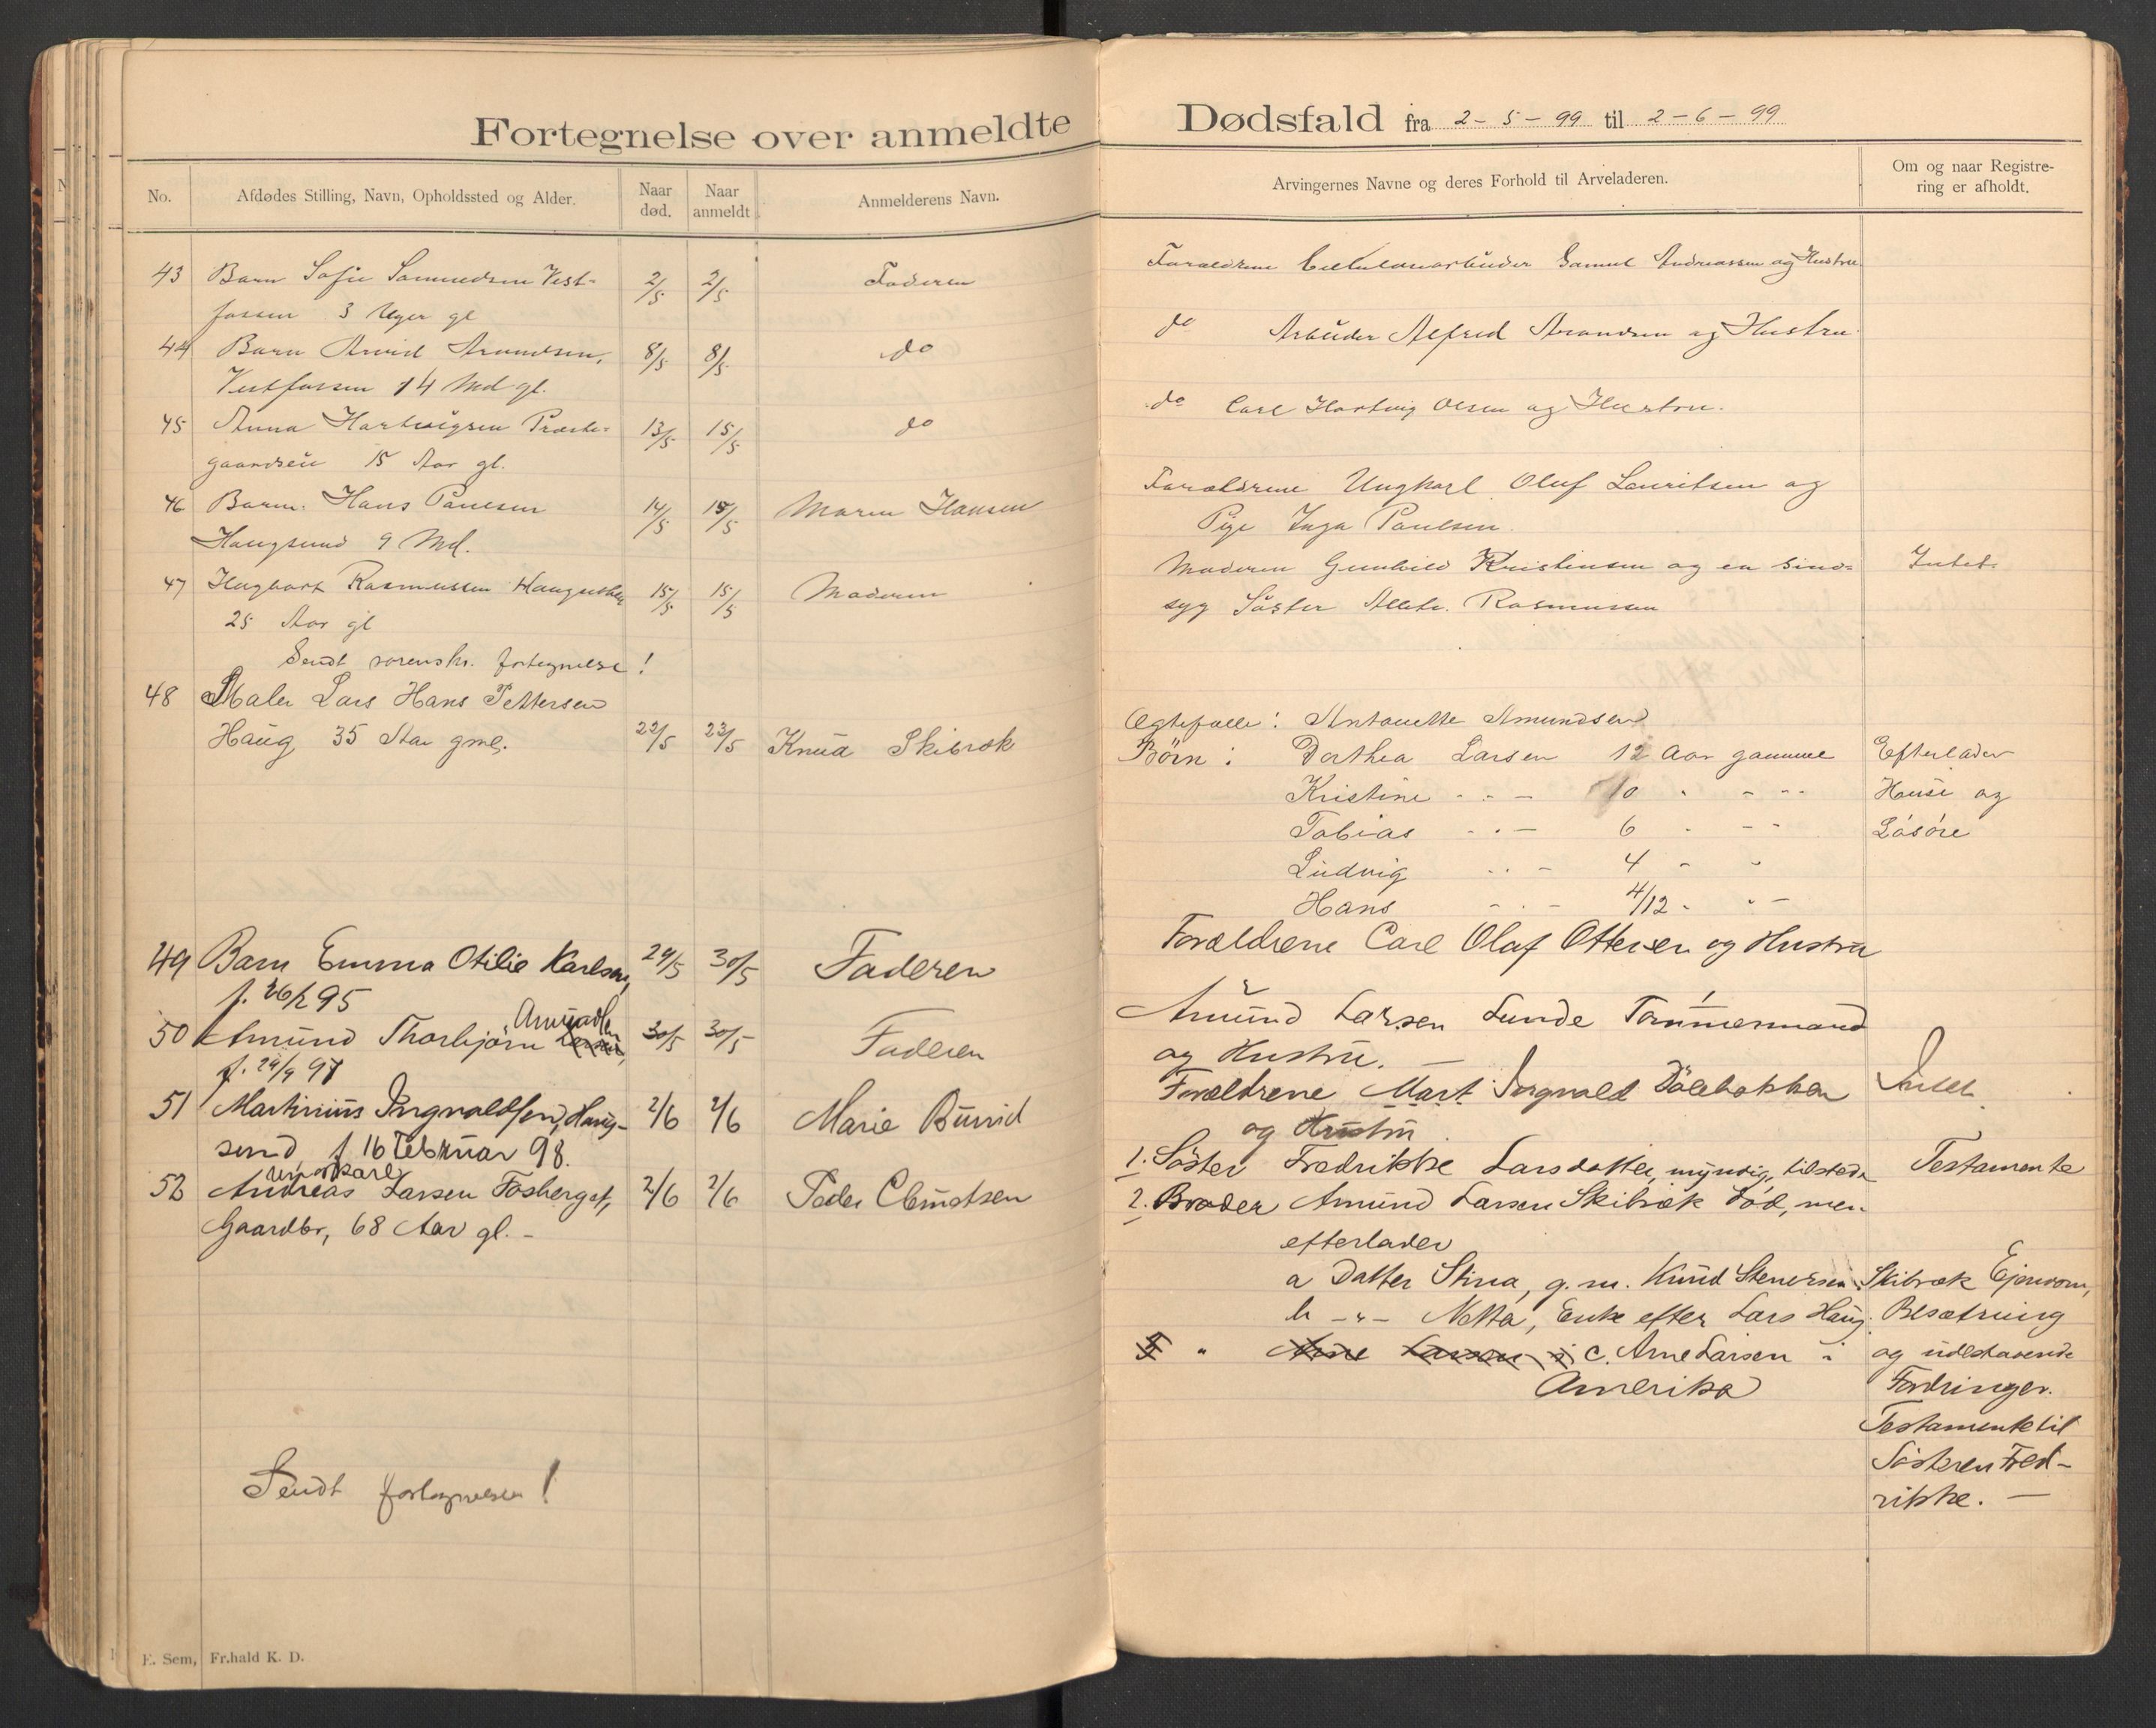 Fortegnelse over anmeldte
No.
Afdødes Stilling, Navn, Opholdssted og Alder.
Naar død.
Naar anmeldt
Anmelderens Navn.
43 Barn Sofie Samuelsen Vest- 2/5 2/5 Faderen
fossen 3 Uger gl
44 Barn Arvid Amundsen, 8/5 8/5 do
Vestfossen 14 Md gl.
45 Anna Hartvigsen Præste- 13/5 15/5 do
gaardseie 15 Aar gl.
46 Barn Hans Paulsen 14/5 15/5 Maren Hansen
Haugsund 9 Md.
47 Hagbart Rasmussen 15/5 15/5 Moderen
25 Aar gl
Sendt sorenskr. fortegnelse!
48 Maler Lars Hans Pettersen
Haug 35 Aar gml. 22/5 23/5 Knud Skibræk
49 Barn Emma Otilie Karlsen, 29/5 30/5 Faderen
f. 95
Amundsen
50 Amund Thorbjørn 30/5 30/5 Faderen
f. 29/9 97
51 Martinius Ingvaldsen, Haug- 2/6 2/6 Marie
sund f 16 Februar 98.
Ungkarl
52 Andreas Larsen Fosberget, 2/6 2/6 Peder Clemetsen
Gaardbr, 68 Aar gl. -
Sendt fortegnelse!
E. Sem, Fr.hald K. D.
Dødsfald fra 2-5-99 til 2-6-99
Arvingernes Navne og deres Forhold til Arveladeren.
Om og naar Registre-
ring er afholdt.
Forældrene Cellulosearbeider Samuel Andreassen og Hustru
do Arbeider Alfred Amundsen og Hustru
do Carl Hartvig Olsen og Hustru.
Forældrene Ungkarl Oluf Lauritsen og
Pige Inga Paulsen.
Moderen Gunhild Kristensen og en sind- Intet.
syg Søster Rasmussen
Ægtefælle: Antonette Amundsen
Børn: Dorthea Larsen 12 Aar gammel Efterlader
Kristine - . - 10 " - - - Huus og
Tobias - . - 6 " - - Løsøre
Ludvig - . - 4 " -
Hans - . - 4/12 " -
Forældrene Carl Olaf Ottersen og Hustru
Amund Larsen Lunde Tømmermand
og Hustru. -
Forældrene Mart. Ingvald Dølebakken Intet
og Hustru.
1. Søster Fredrikke Larsdatter, myndig, tilstede Testamente
2. Broder Amund Larsen Skibræk død, men
efterlader
a Datter Stina, g. m. Knud Stenersen Skibræk Ejendom,
b -"- Netta, Enke efter Lars Haug. Besætning
" Arne Larsen i c. Arne Larsen i og udestaaende
Amerika Fordringer.
Testamente til
Søsteren Fred-
rikke. -